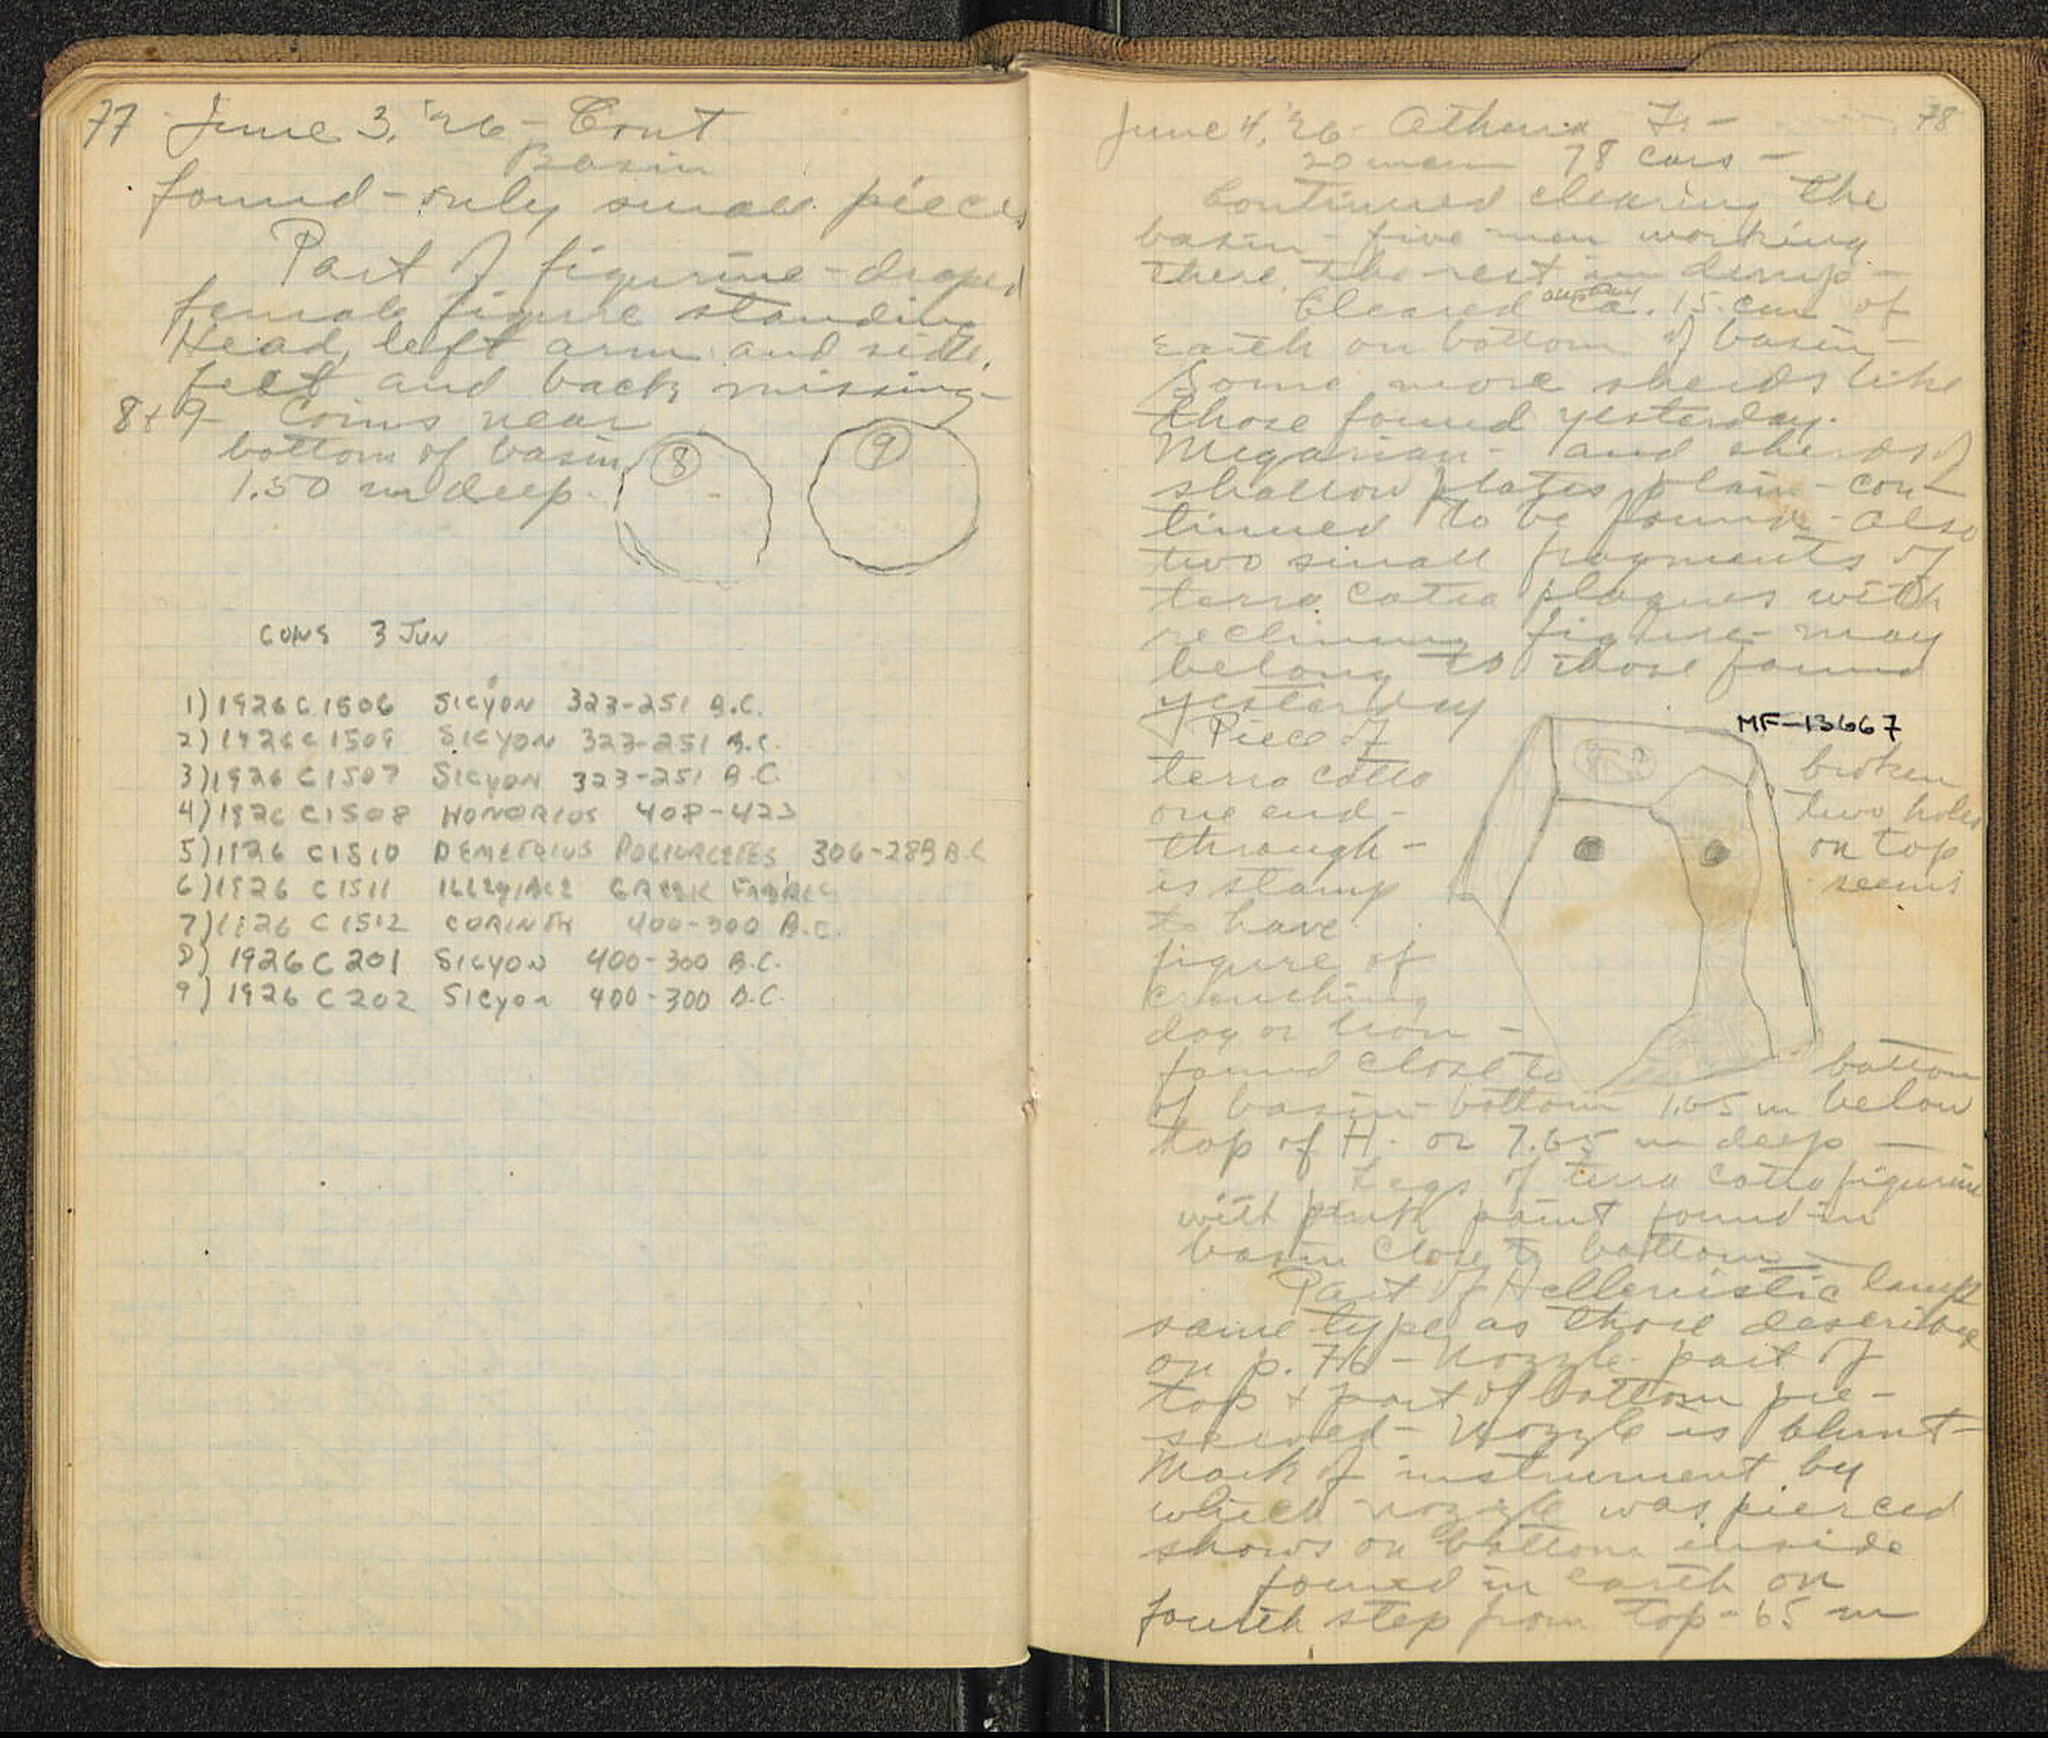 77 June 3, '26 - Cont
Basin
found - only small pieces
Part of figurine - draped
female figure standing
Head, left arm and side,
feet and back missing -
8+9 - Coins near
bottom of basin
1.50 m deep.
8
9
COINS 3 JUN
1) 1926 C 1506 SICYON 323-251 B.C.
2) 1926 C 1509 SICYON 323-251 B.C.
3) 1926 C 1507 SICYON 323-251 B.C.
4) 1926 C 1508 HONORIUS 408-423
5) 1926 C 1510 DEMETRIUS POLIORCETES 306-283 B.C.
6) 1926 C 1511 ILLEGIBLE GREEK FABRIC
7) 1926 C 1512 CORINTH 400-300 B.C.
8) 1926 C 201 SICYON 400-300 B.C.
9) 1926 C 202 SICYON 400-300 B.C.
June 4, '26 - Athena Fr - 78
20 men 78 cars -
Continued clearing the
basin - five men working
there, the rest in dump -
Cleared ca. 15 cm of
earth on bottom of basin -
Some more sherds like
those found yesterday.
Megarian - and sherds of
shallow plates, plain - con-
tinued to be found - Also
two small fragments of
terra cotta plaques with
reclining figure - may
belong to those found
yesterday
MF-13667
Piece of
terra cotta broken
one end - two holes
through - on top
is stamp seems
to have
figure of
crouching
dog or lion -
found close to bottom
of basin - bottom 1.65 m below
top of H. or 7.65 m deep -
Legs of terra cotta figurine
with pink paint found in
basin close to bottom -
Part of Hellenistic lamp
same type as those described
on p. 76 - Nozzle part of
top + part of bottom pre-
served - Nozzle is blunt -
Mark of instrument by
which nozzle was pierced
shows on bottom inside
found in earth on
fourth step from top - 65 m